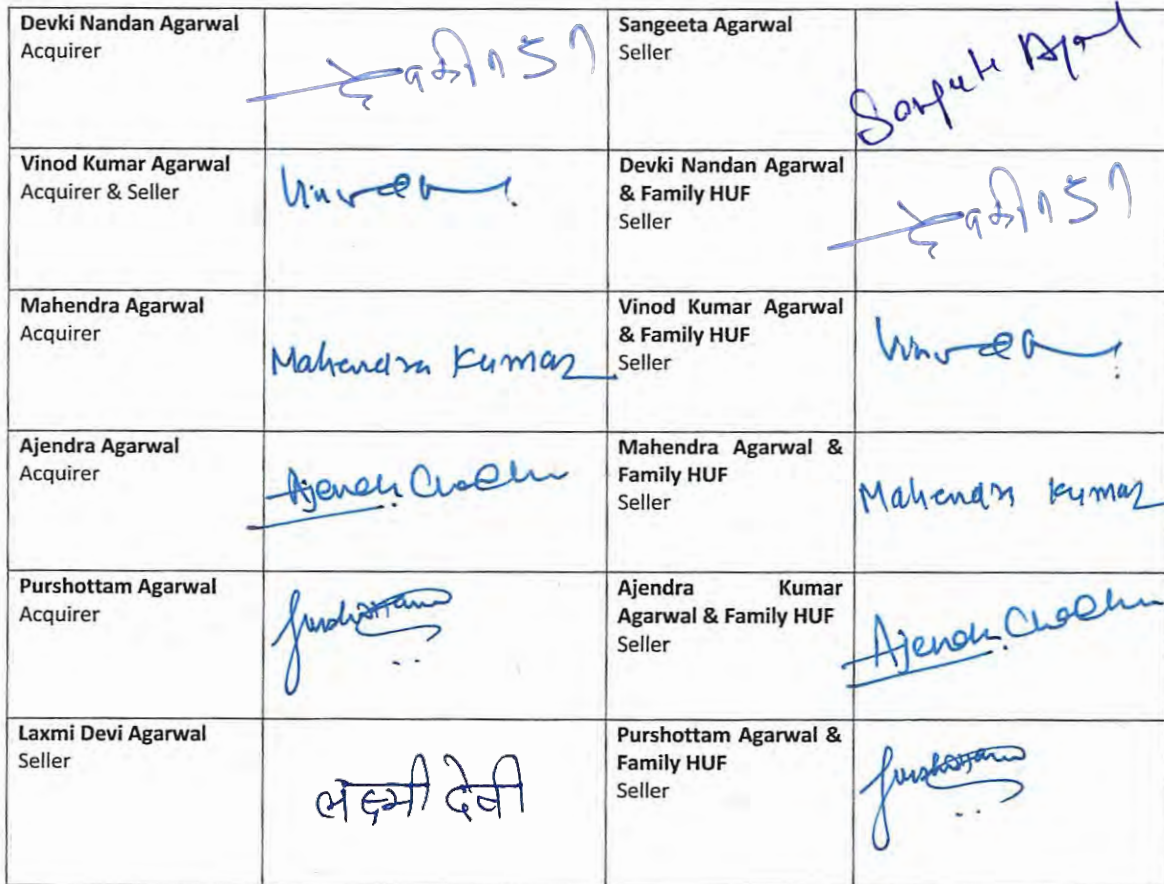 Devki Nandan Agarwal
Acquirer
Sangeeta Agarwal
Seller
Vinod Kumar Agarwal
Acquirer & Seller
Devki Nandan Agarwal
& Family HUF
Seller
Mahendra Agarwal
Acquirer
Mahendra Kumar
Vinod Kumar Agarwal
& Family HUF
Seller
Ajendra Agarwal
Acquirer
Mahendra Agarwal &
Family HUF
Seller
Mahendra Kumar
Purshottam Agarwal
Acquirer
Ajendra Kumar
Agarwal & Family HUF
Seller
Laxmi Devi Agarwal
Seller
लक्ष्मी देवी
Purshottam Agarwal &
Family HUF
Seller